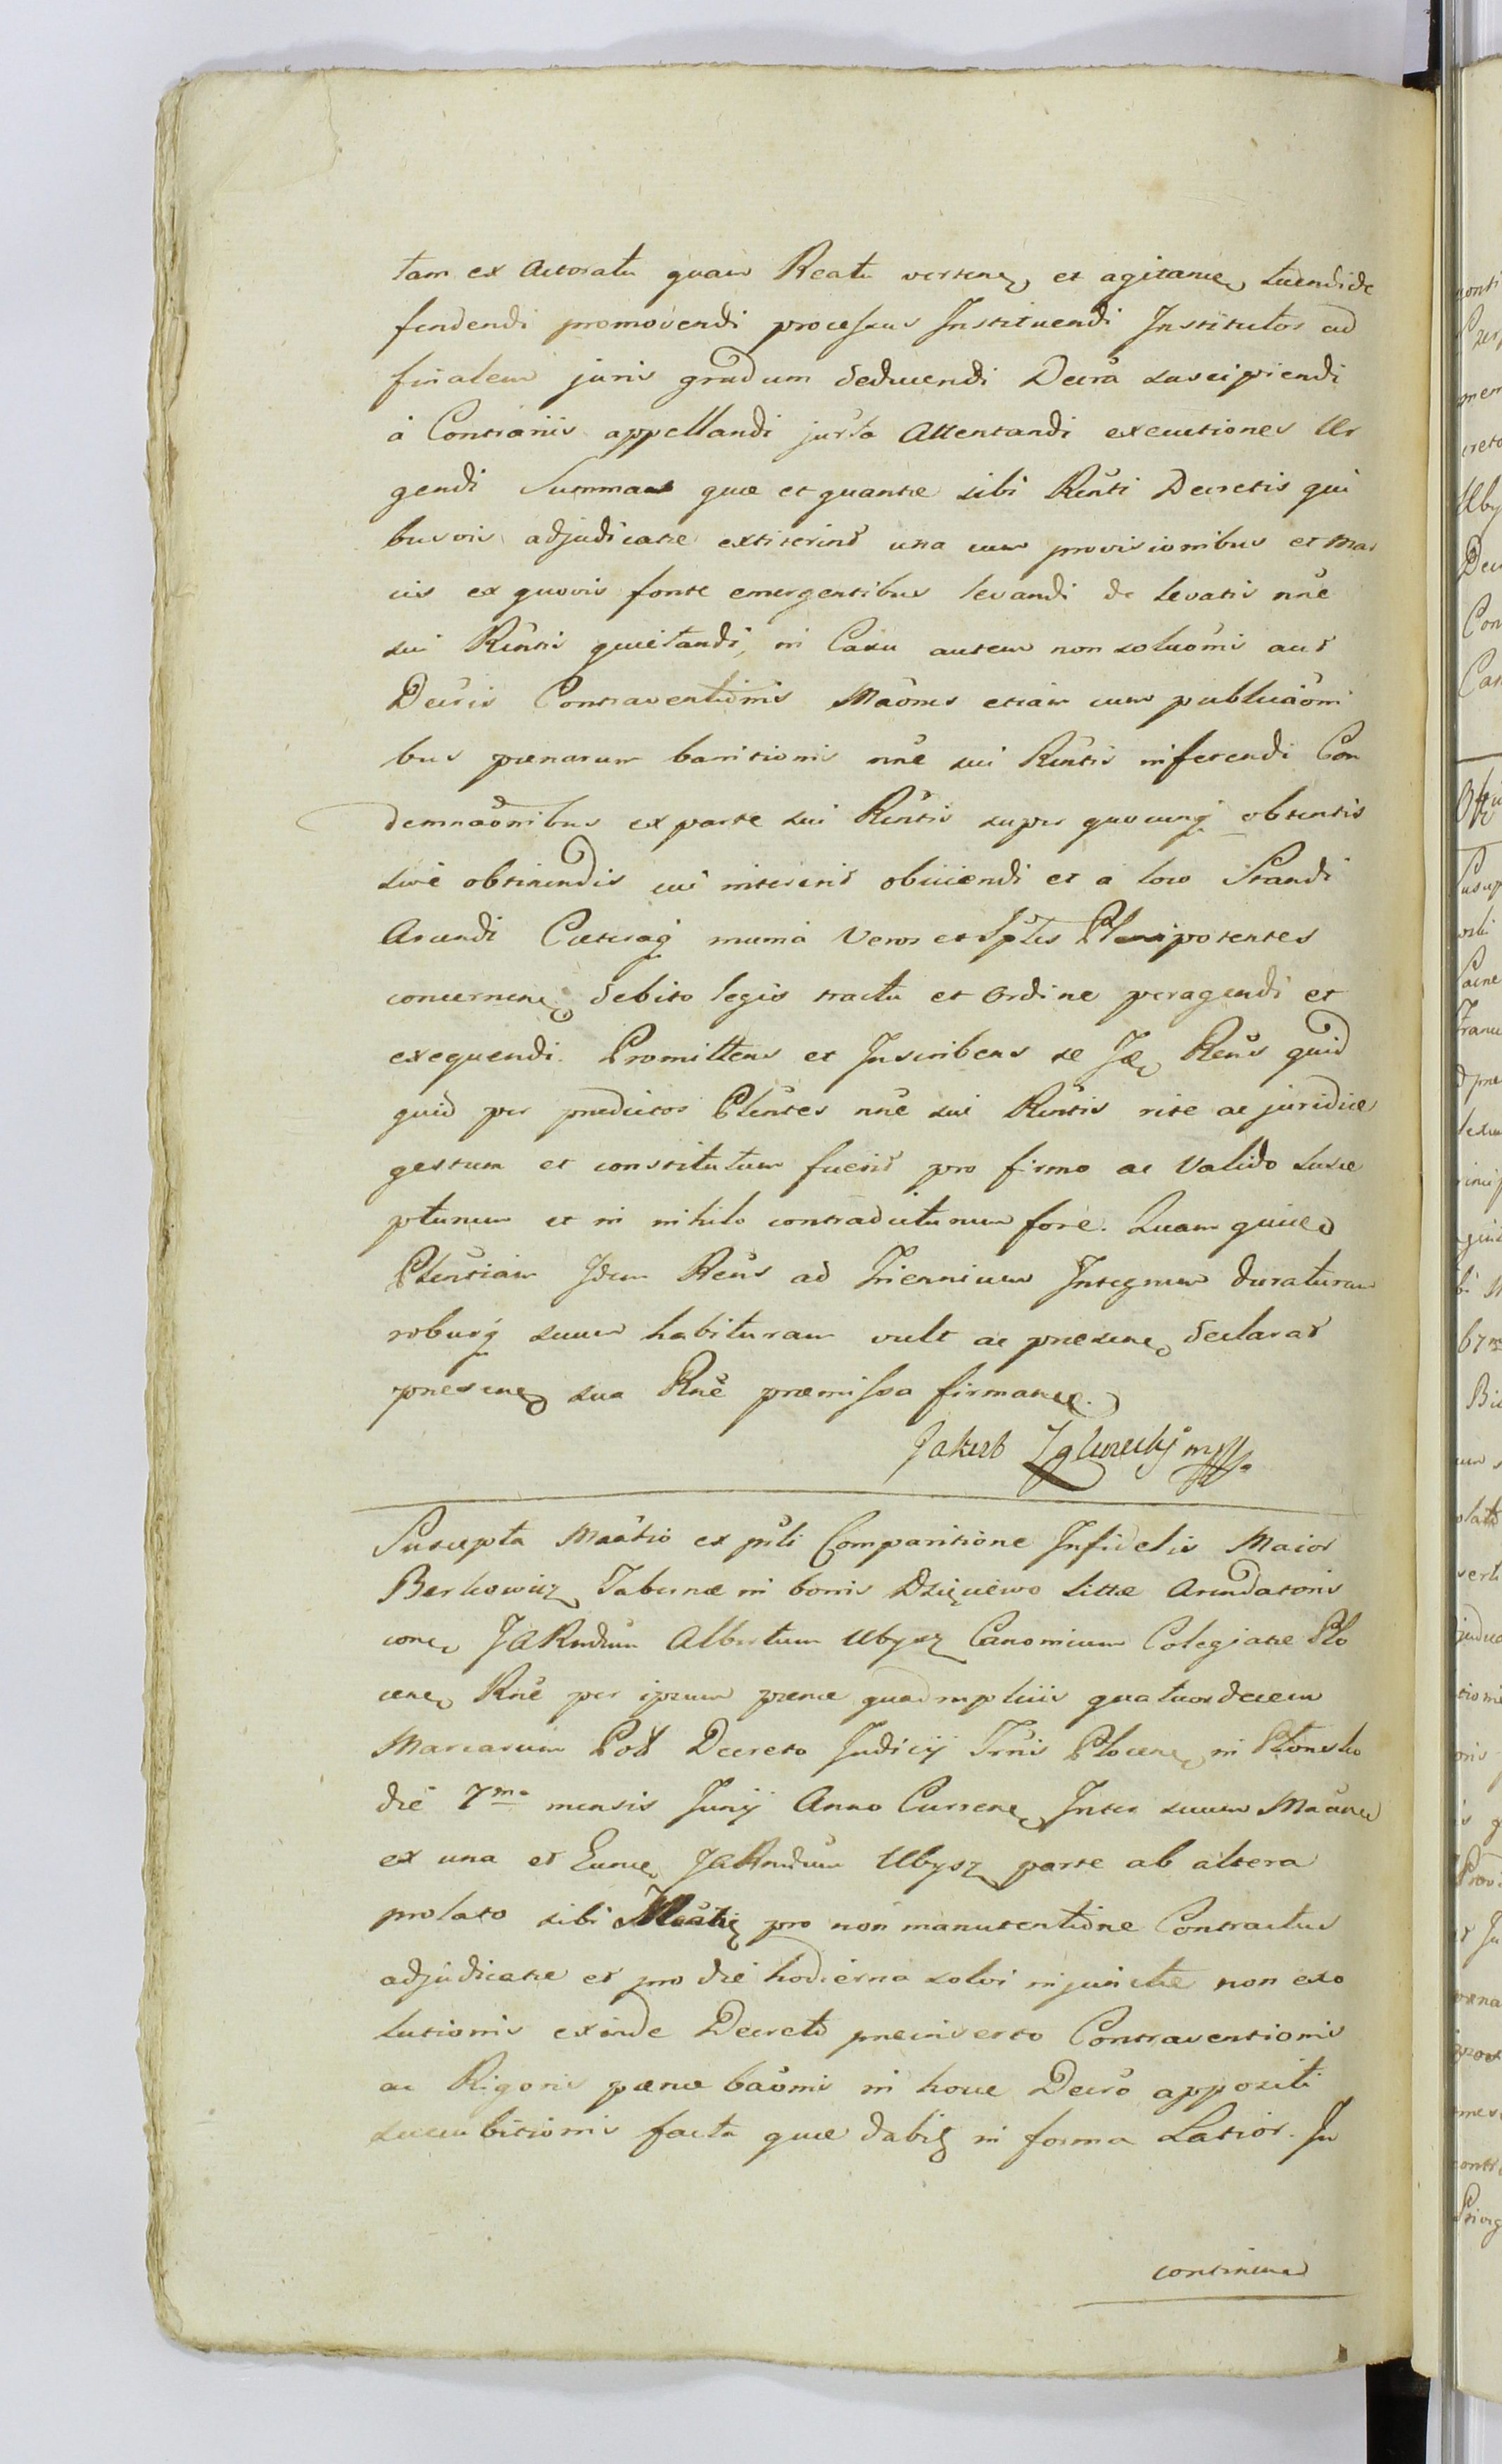 tam ex Actoratu quam Reatu verten. et agitan. tuendi de
fendendi promovendi processus Instituendi Institutos ad
finalem juris gradum deducendi Decra suscipiendi
à Contrariis appellandi jurta Attentandi executiones Ur
gendi Summas quæ et quantæ sibi Rcnti Decretis qui
busvis adjudicatæ extiterint una cum provisionibus et Mar
cis ex quovis fonte emergentibus levandi de levatis nñe
sui Rcntis quietandi, in Casu autem non solvoñis aut
Decris Contraventionis Mãones etiam cum publicãoni
bus pænarum banitionis nñe sui Rcntis inferendi Con
demnãonibus ex parte sui Rcntis super quocunq obtentis
sive obtinendis cui intererit obiiciendi et a loco Standi
Arcendi Cæteraq munia Veros et Sples Plenipotentes
concernen. debito legis tractu et Ordine peragendi et
exequendi. Promittens et Inscribens se Id. Rcns quid
quid per prædictos Plentes nñe sui Rcntis rite ac juridice
gestum et constitutum fuerit pro firmo ac Valido susce
pturum et in nihilo contradicturum fore. Quam quidem
Plentiam Idem Rcns ad Triennium Integrum duraturam
roburq suum habituram vult ac præsen. declarat
præsen. sua Rne præmissa firman.
Jakub mpp
Suscepta Mãatio ex psti Comparitione Infidelis Maior
Berkowicz Tabernæ in bonis Dzięciewo sittæ Arendatoris
con. JARndum Albertum Ubysz Canonicum Colegiatæ Plo
cen. Rne per ipsum pænæ quadrupliciis quatuordecem
Marcarum Pol Decreto Judicij Trnis Plocen. in Płonsko
die 7ma mensis Junij Anno Curren. Inter suum Mãan.
ex una et Eun. JARndum Ubysz parte ab altera
prolato sibi pro non manutentione Contractus
adjudicatæ et pro die hodierna solvi injunctæ non exo
lutionis exinde Decreto præinserto Contraventionis
ac Rigoris pænæ bãonis in hocce Decro appositi
succubitionis facta quæ dabit in forma Latior. In
continen.